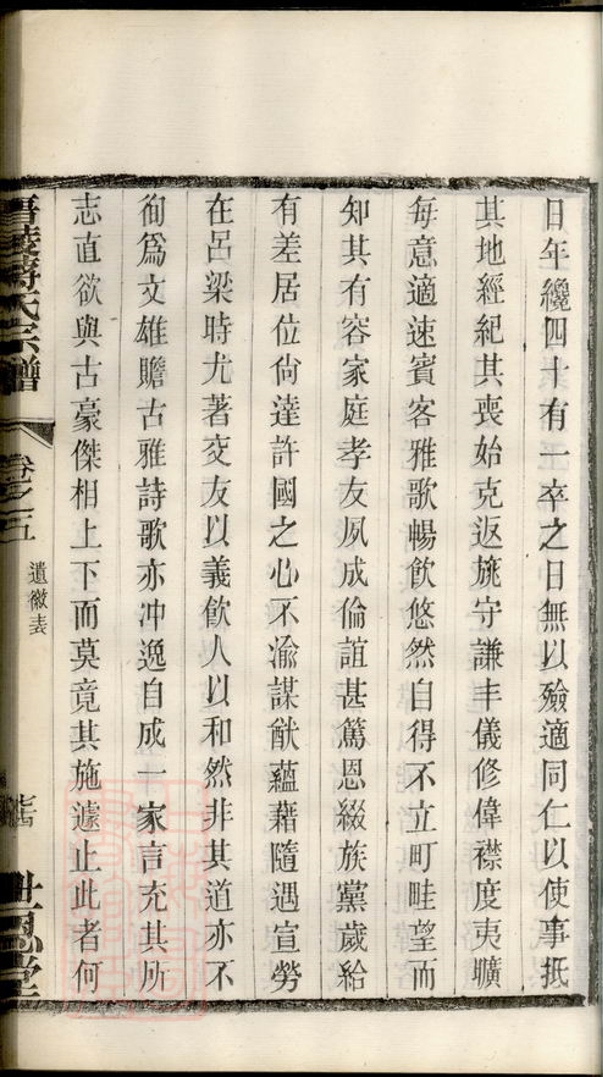 日年纔四十有一卒之日無以殮適同仁以使事抵
其地經紀其喪始克返旐守謙丰儀修偉襟度夷曠
每意適速賓客雅歌暢飲悠然自得不立町畦望而
知其有容家庭孝友夙成倫誼甚篤恩綴族黨歲給
有差居位尙達許國之心不渝謀猷蘊藉隨遇宣勞
在呂梁時尤著交友以義飲人以和然非其道亦不
徇爲文雄贍古雅詩歌亦冲逸自成一家言充其所
志直欲與古豪傑相上下而莫竟其施遽止此者何
晉陵蔣氏宗譜
卷之五
遺徽表
世恩堂